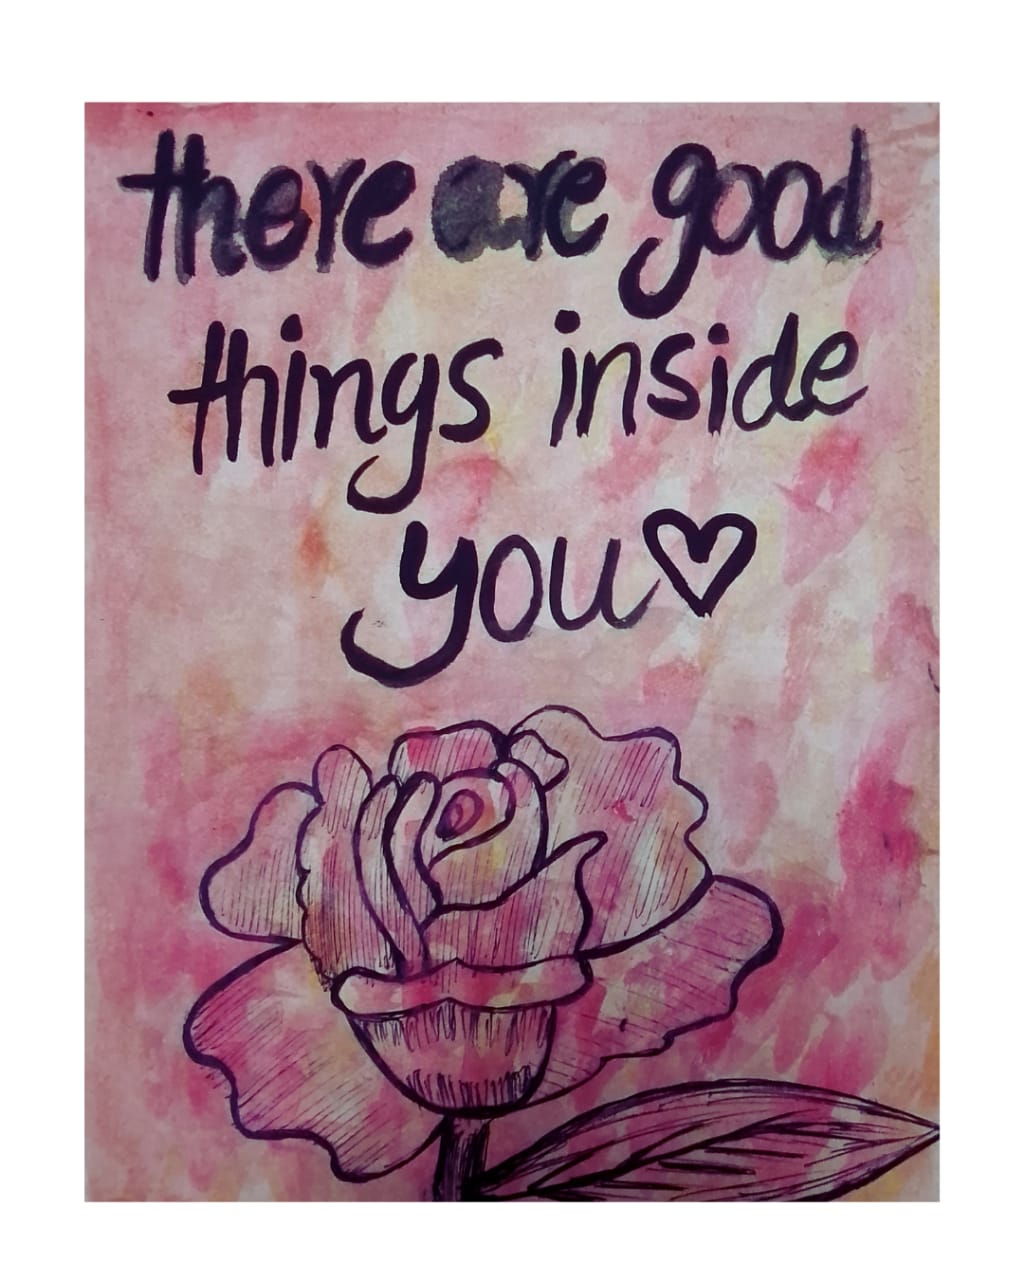 there are good
things inside
you♡